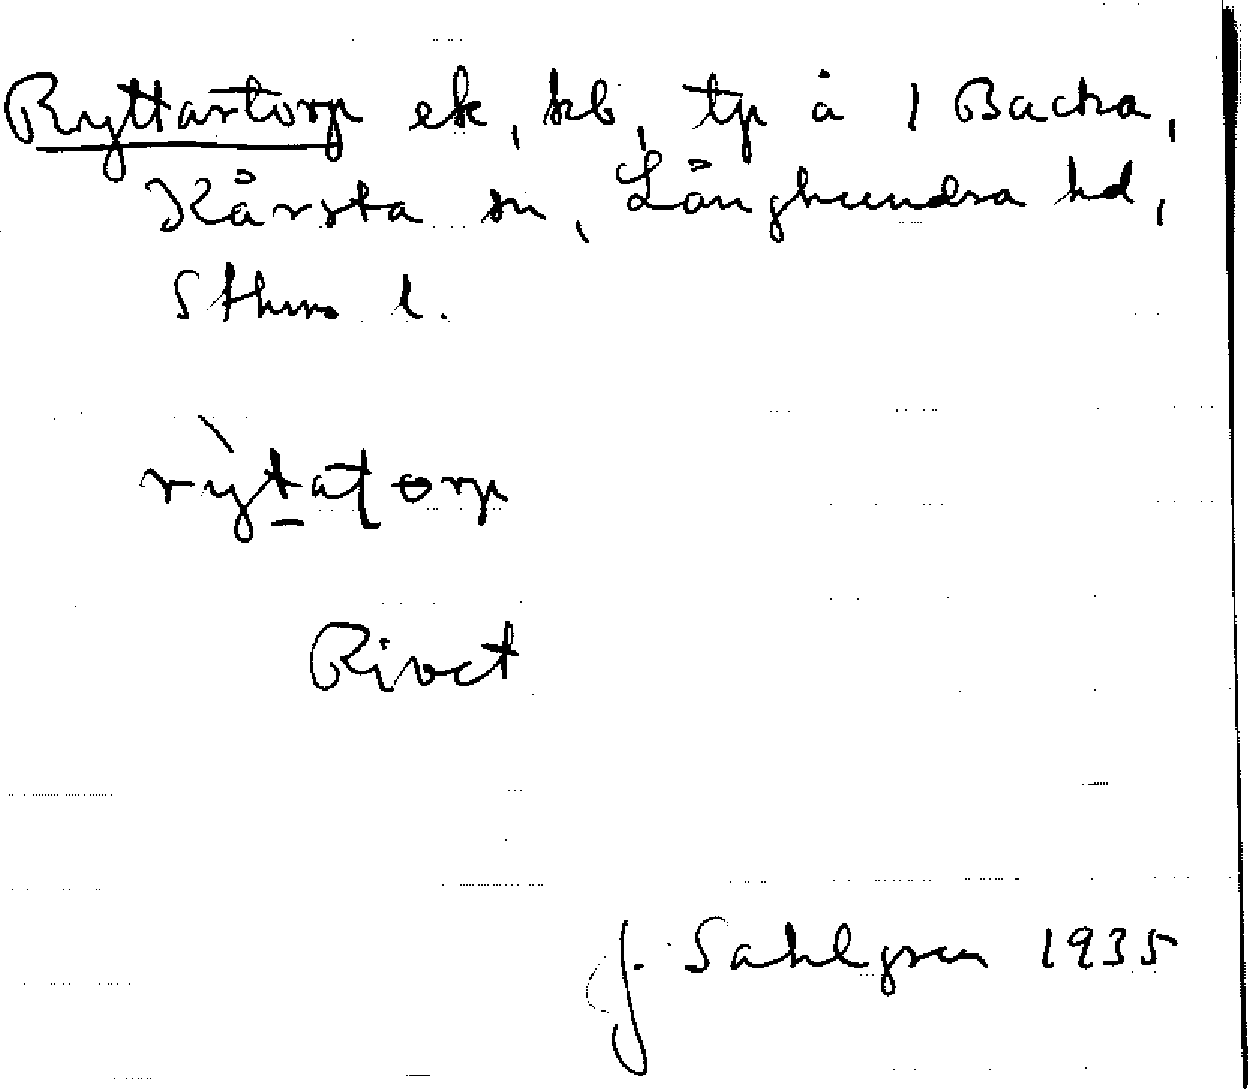 Ryttartorp ek, kb, tp å 1 Backa,
Kårsta sn, Långhundra hd,
Sthms l.
rỳtatorp
Rivet
J. Sahlgren 1935